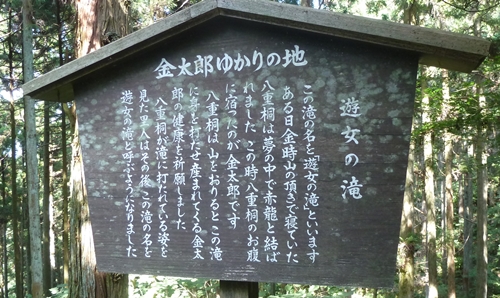 金太郎ゆかりの地
遊女の滝
この滝の名を「遊女の滝」といいます
ある日金時山の頂きで寝ていた
八重桐は夢の中で赤龍と結ば
れました この時八重桐のお腹
に宿ったのが金太郎です
八重桐は、山をおりるとこの滝
に身を打たせ産まれてくる金太
郎の健康を祈願しました
八重桐が滝に打たれている姿を
見た里人はその後、この滝の名を
遊女の滝と呼ぶようになりました